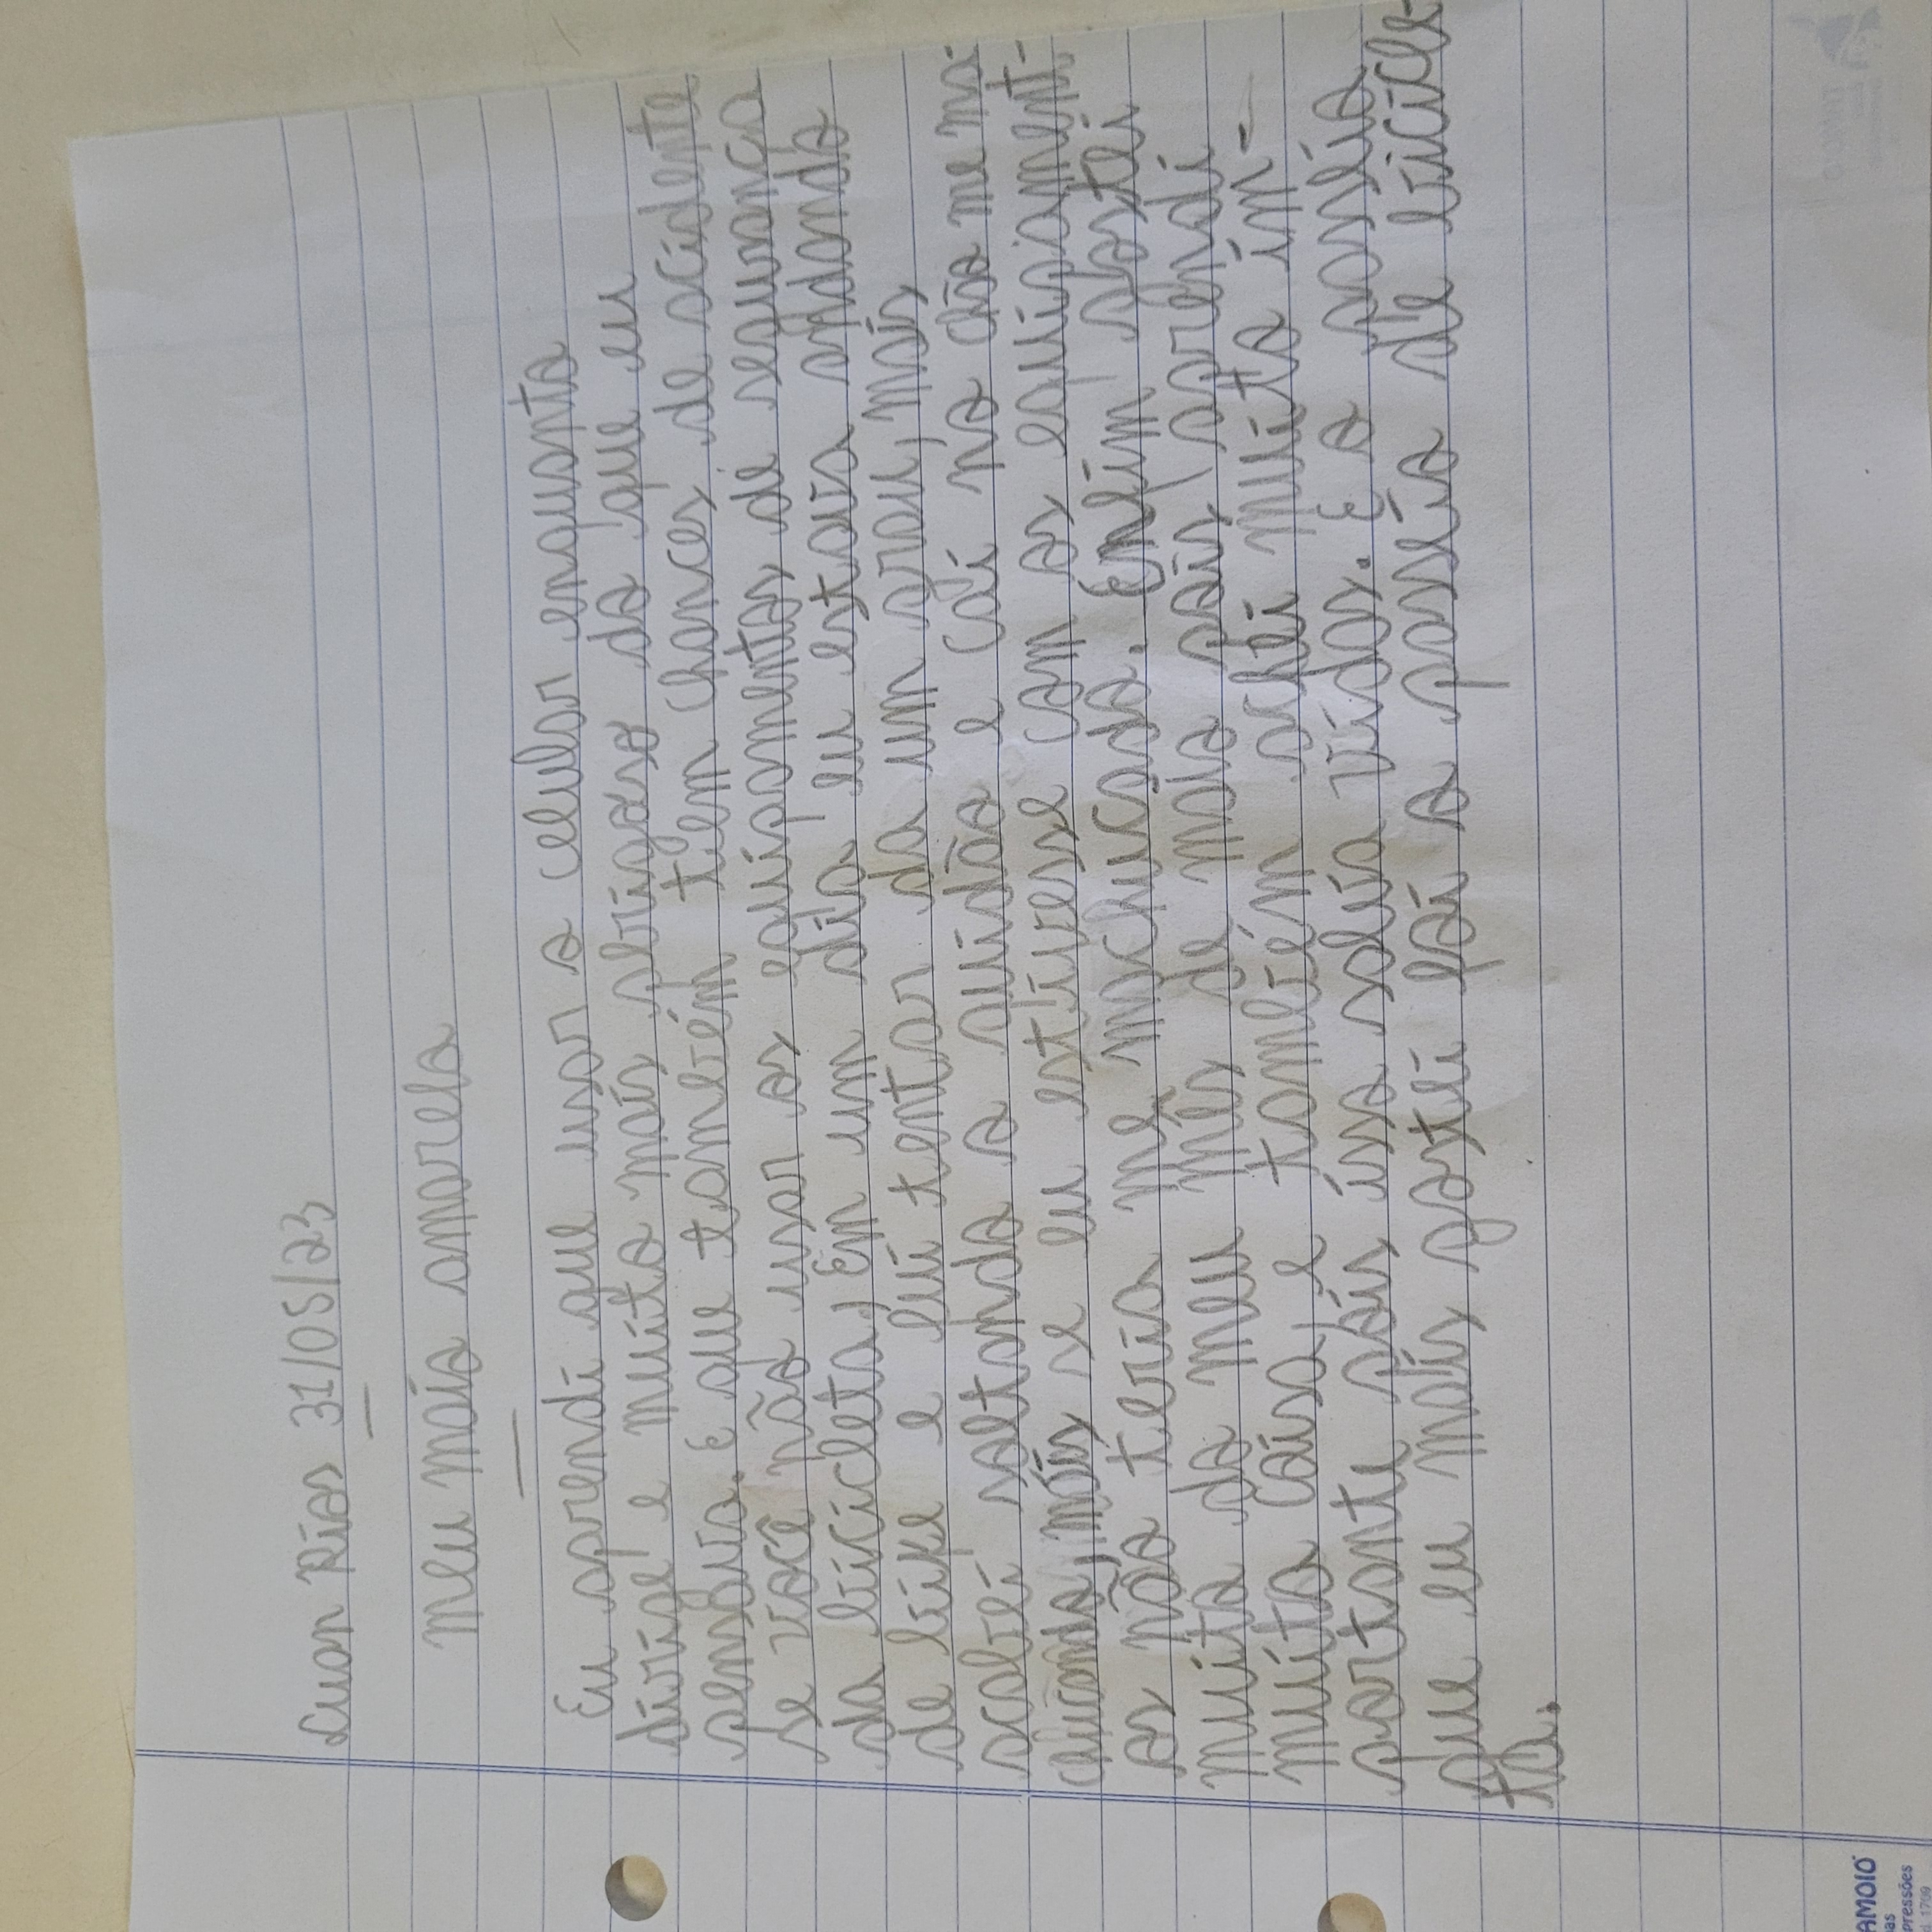 Luan Rios 31/05/23
meu maio amarelo
Eu aprendi que usar o celular enquanto
dirige e muito mais perigoso do que eu
pensava. E que também tem chances de acidente
se você não usar os equipamentos de segurança
da bicicleta, Em um dia eu estava andando
de bike e fui tentar da um grau, mais
acabei soltando o guidão e caí no chão me ma-
chucando, mais se eu estivese com os equipament-
os não teria me machucado. Enfim gostei
muito do meu mês de maio pois, aprendi
muita coisa, e também achei muito im-
portante pois iso salva vidas. E o paseio
que eu mais gostei foi o paseio de bicicle-
ta.
AMOIO
pressões